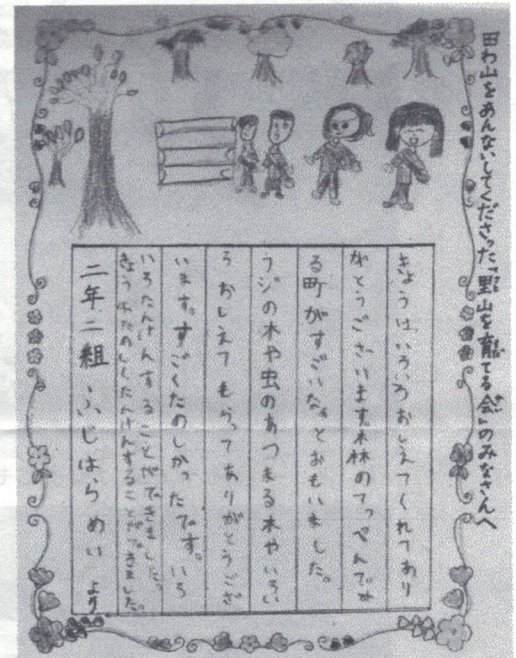 田わ山をあんないしてくださった「野山を育てる会」のみなさんへ
きょうは、いろいろおしえてくれてあり
がとうございます。木林のてっぺんでみ
る町がすごいなぁとおもいました。
ラジの木や虫のあつまる木やいろい
ろおしえてもらってありがとうござ
います。すごくたのしかったです。いろ
いろたんけんすることができました。
きょうはたのしくたんけんすることができました。
二年二組 ふじはらめい より